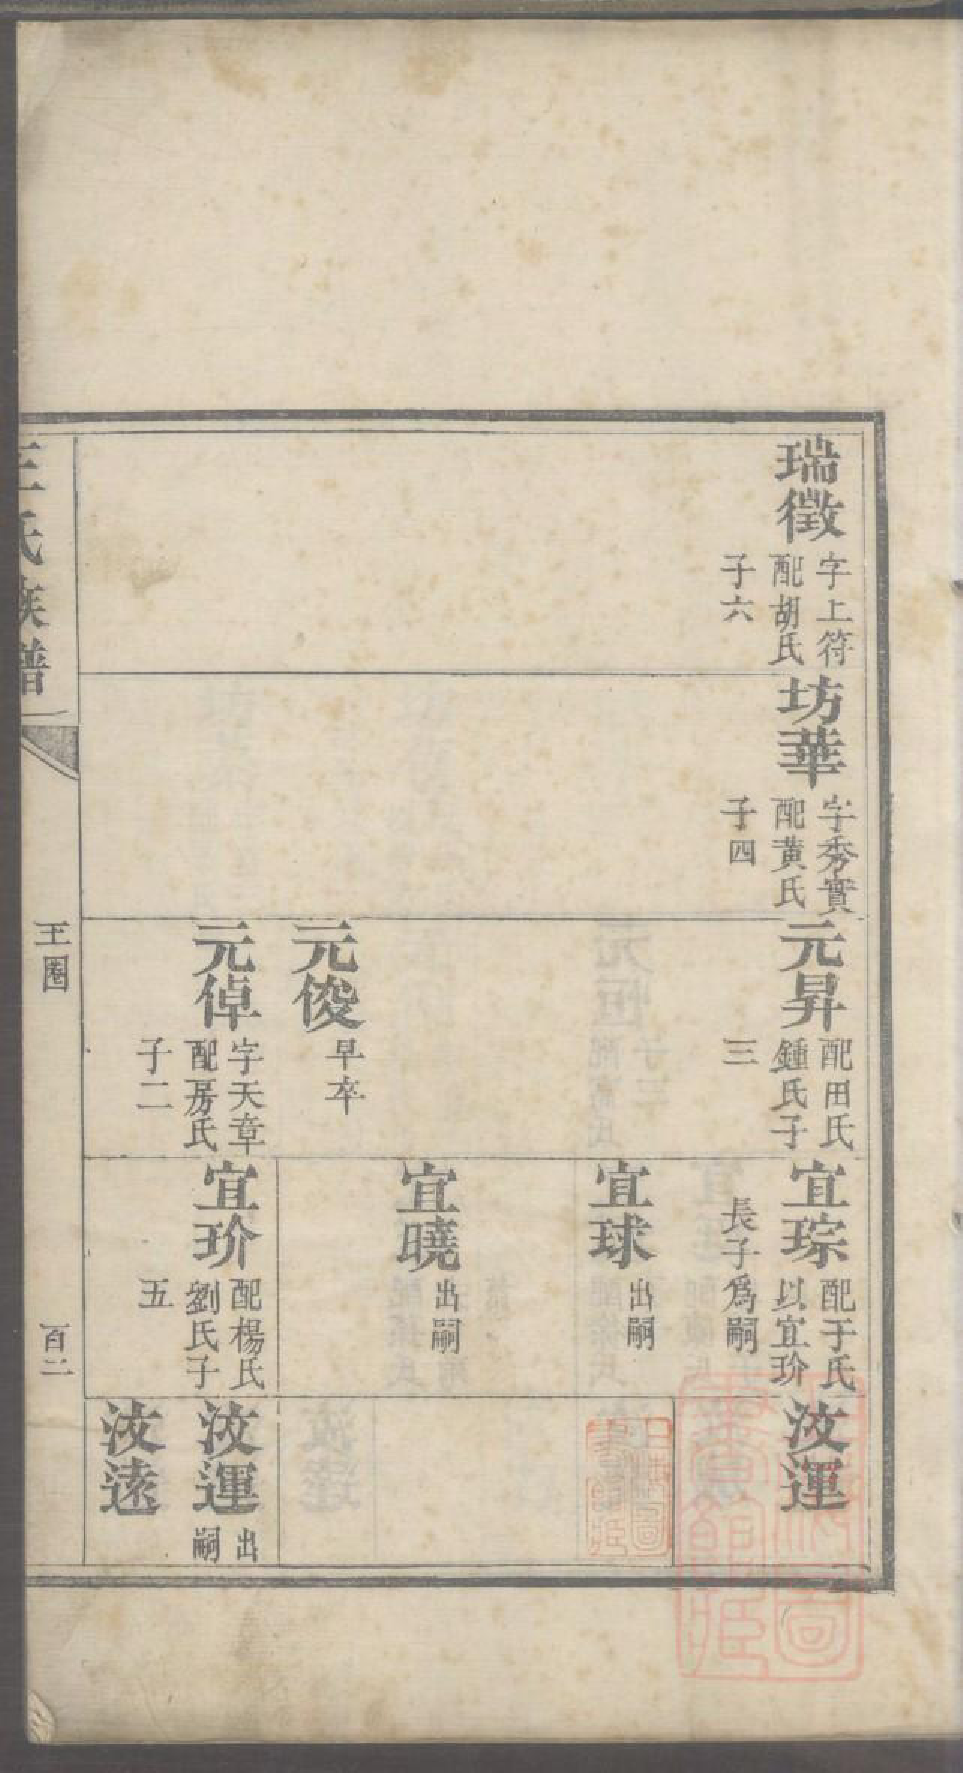 瑞徵
字上符
配胡氏
子六
坊華
字秀實
配黃氏
子四
元昇
配田氏
鍾氏子
三
元俊
早卒
元倬
字天章
配房氏
子二
宜琮
配于氏
以宜玠
長子爲嗣
宜球
出嗣
宜曉
出嗣
宜玠
配楊氏
劉氏子
五
汝運
汝運
出
嗣
汝遠
王氏族譜
王圈
百二